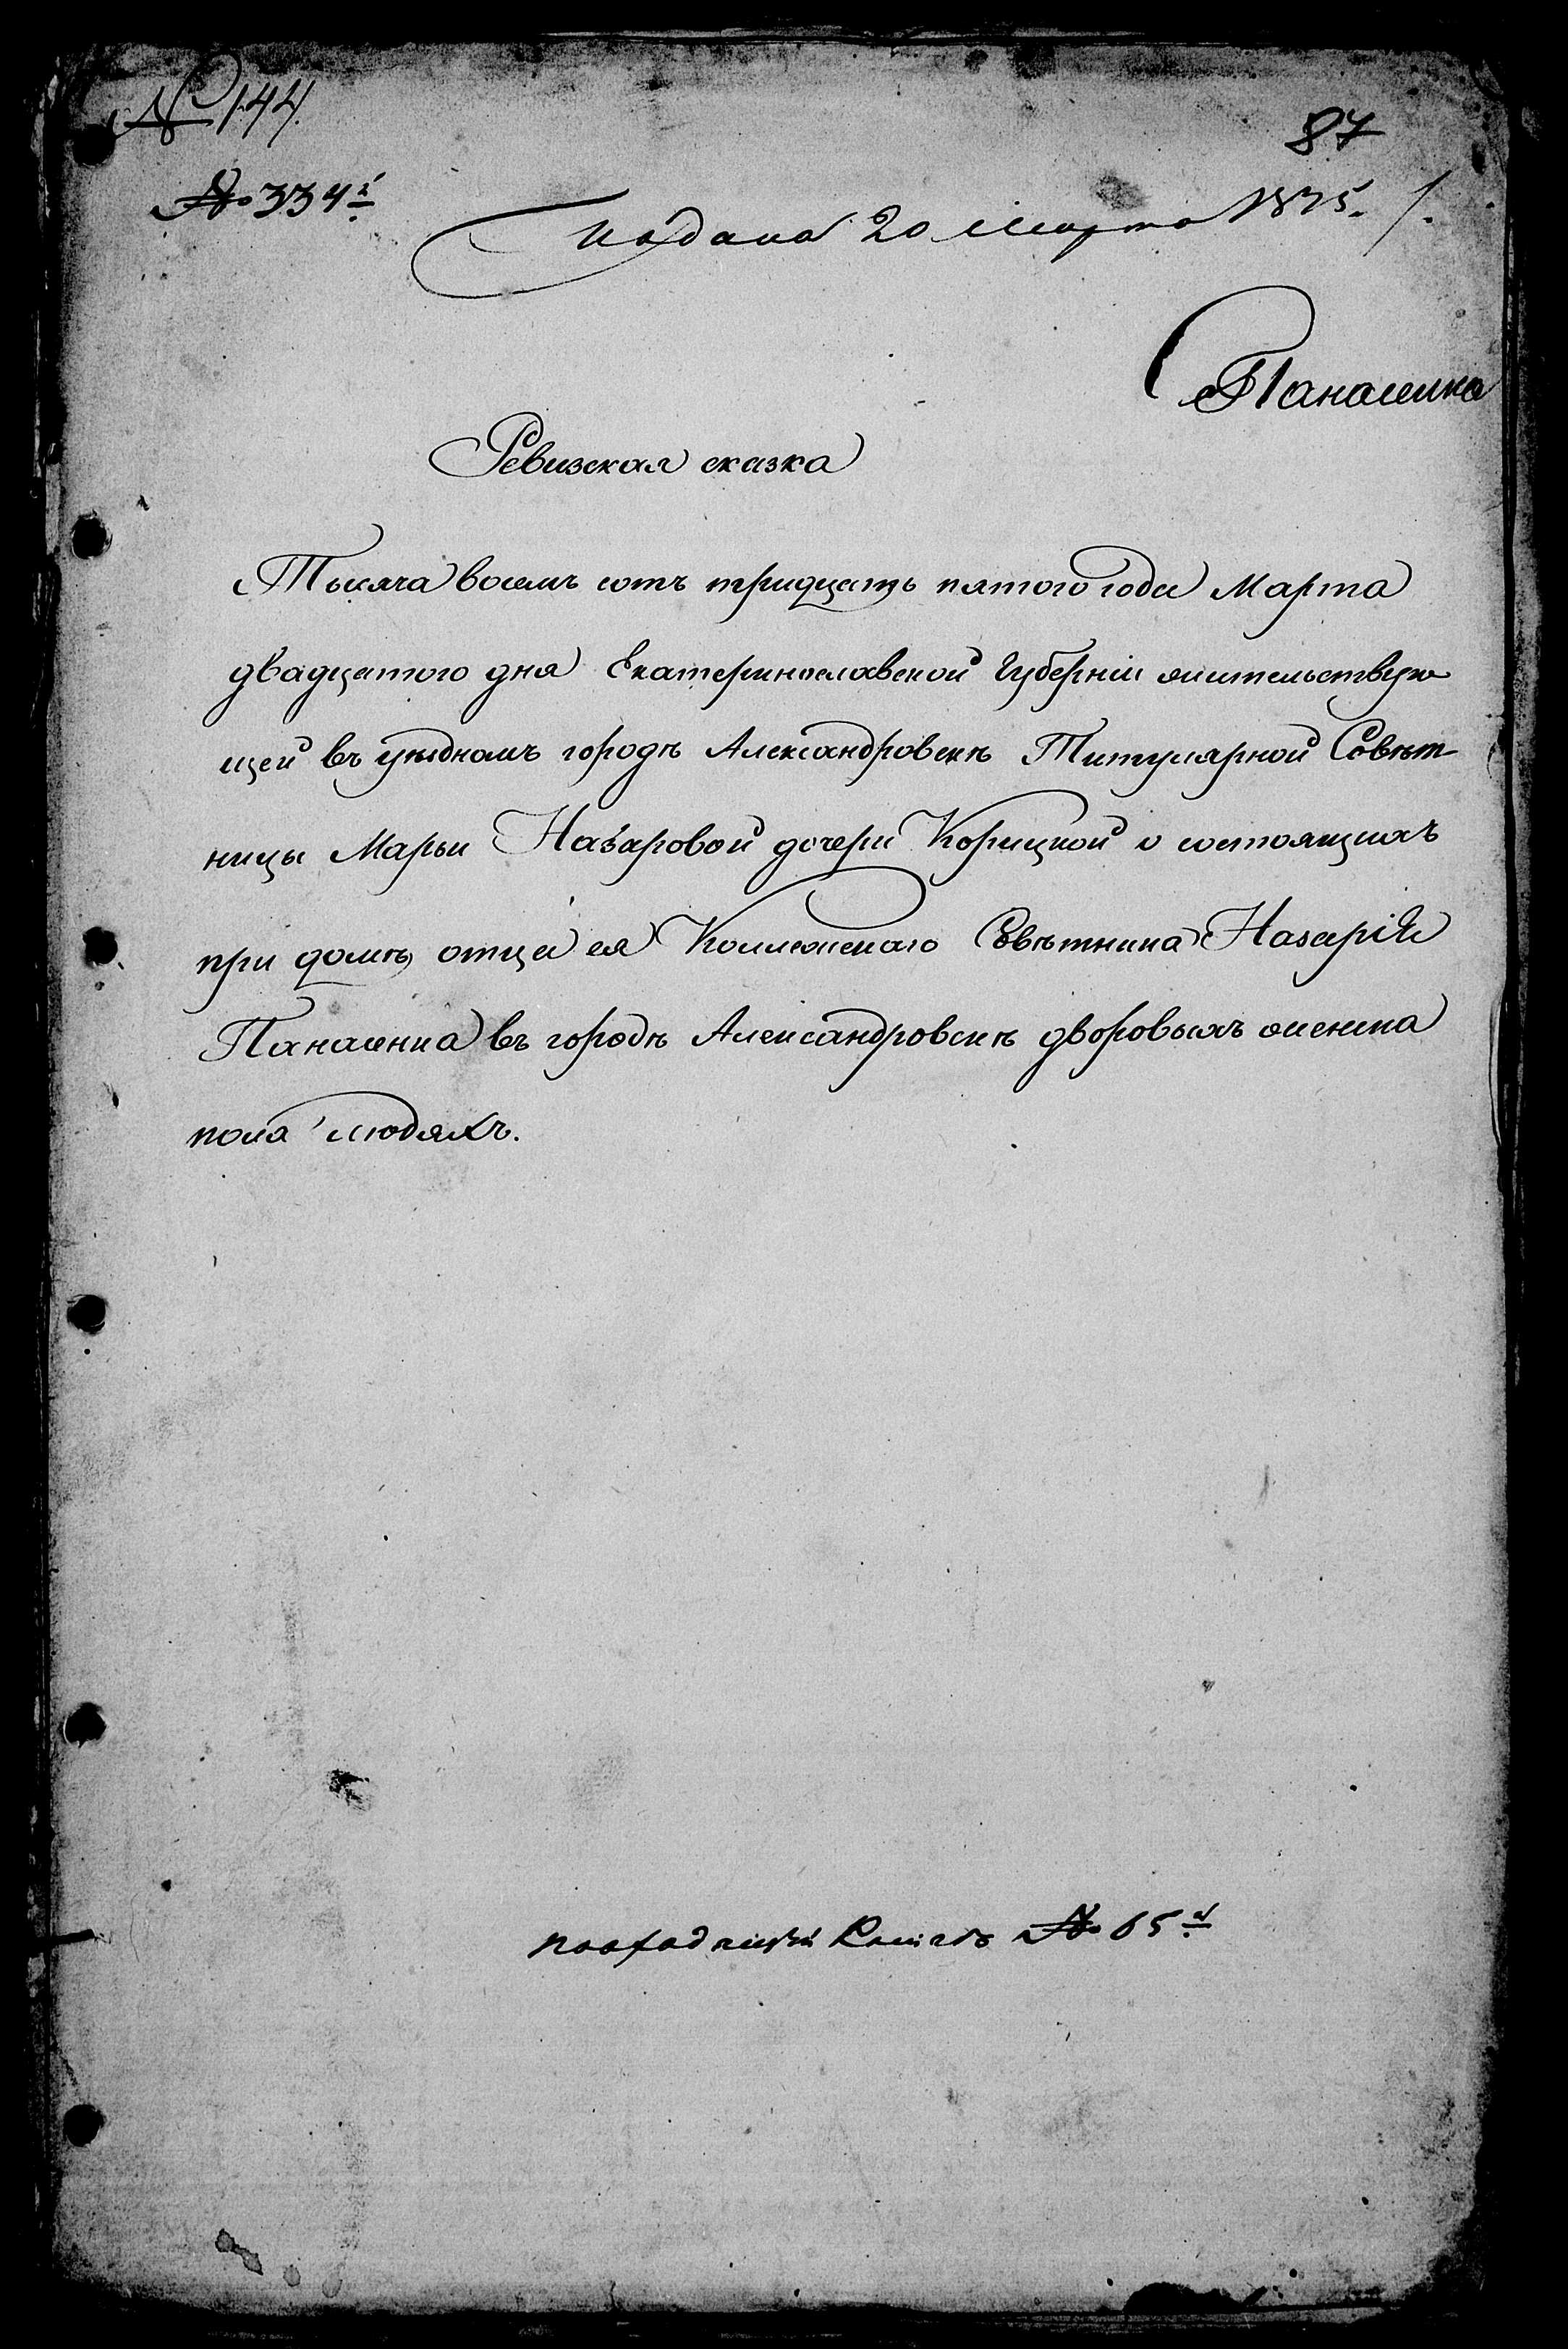 № 144.
87
№ 334й
Подана 20 Марта 1835. г.
Панасенка
Ревизская сказка
Тысяча восемь сотъ тридцать пятого года Марта
двадцатого дня Екатеринославской Губерніи жительствую
щей въ уѣздномъ городѣ Александровскѣ Титулярной Совѣт-
ницы Марьи Назаровой дочери Корицкой о состоящихъ
при домѣ отца ея Коллежскаго Совѣтника Назарія
Панасенка въ городѣ Александровскѣ дворовыхъ женска
пола людяхъ.
№ 65й